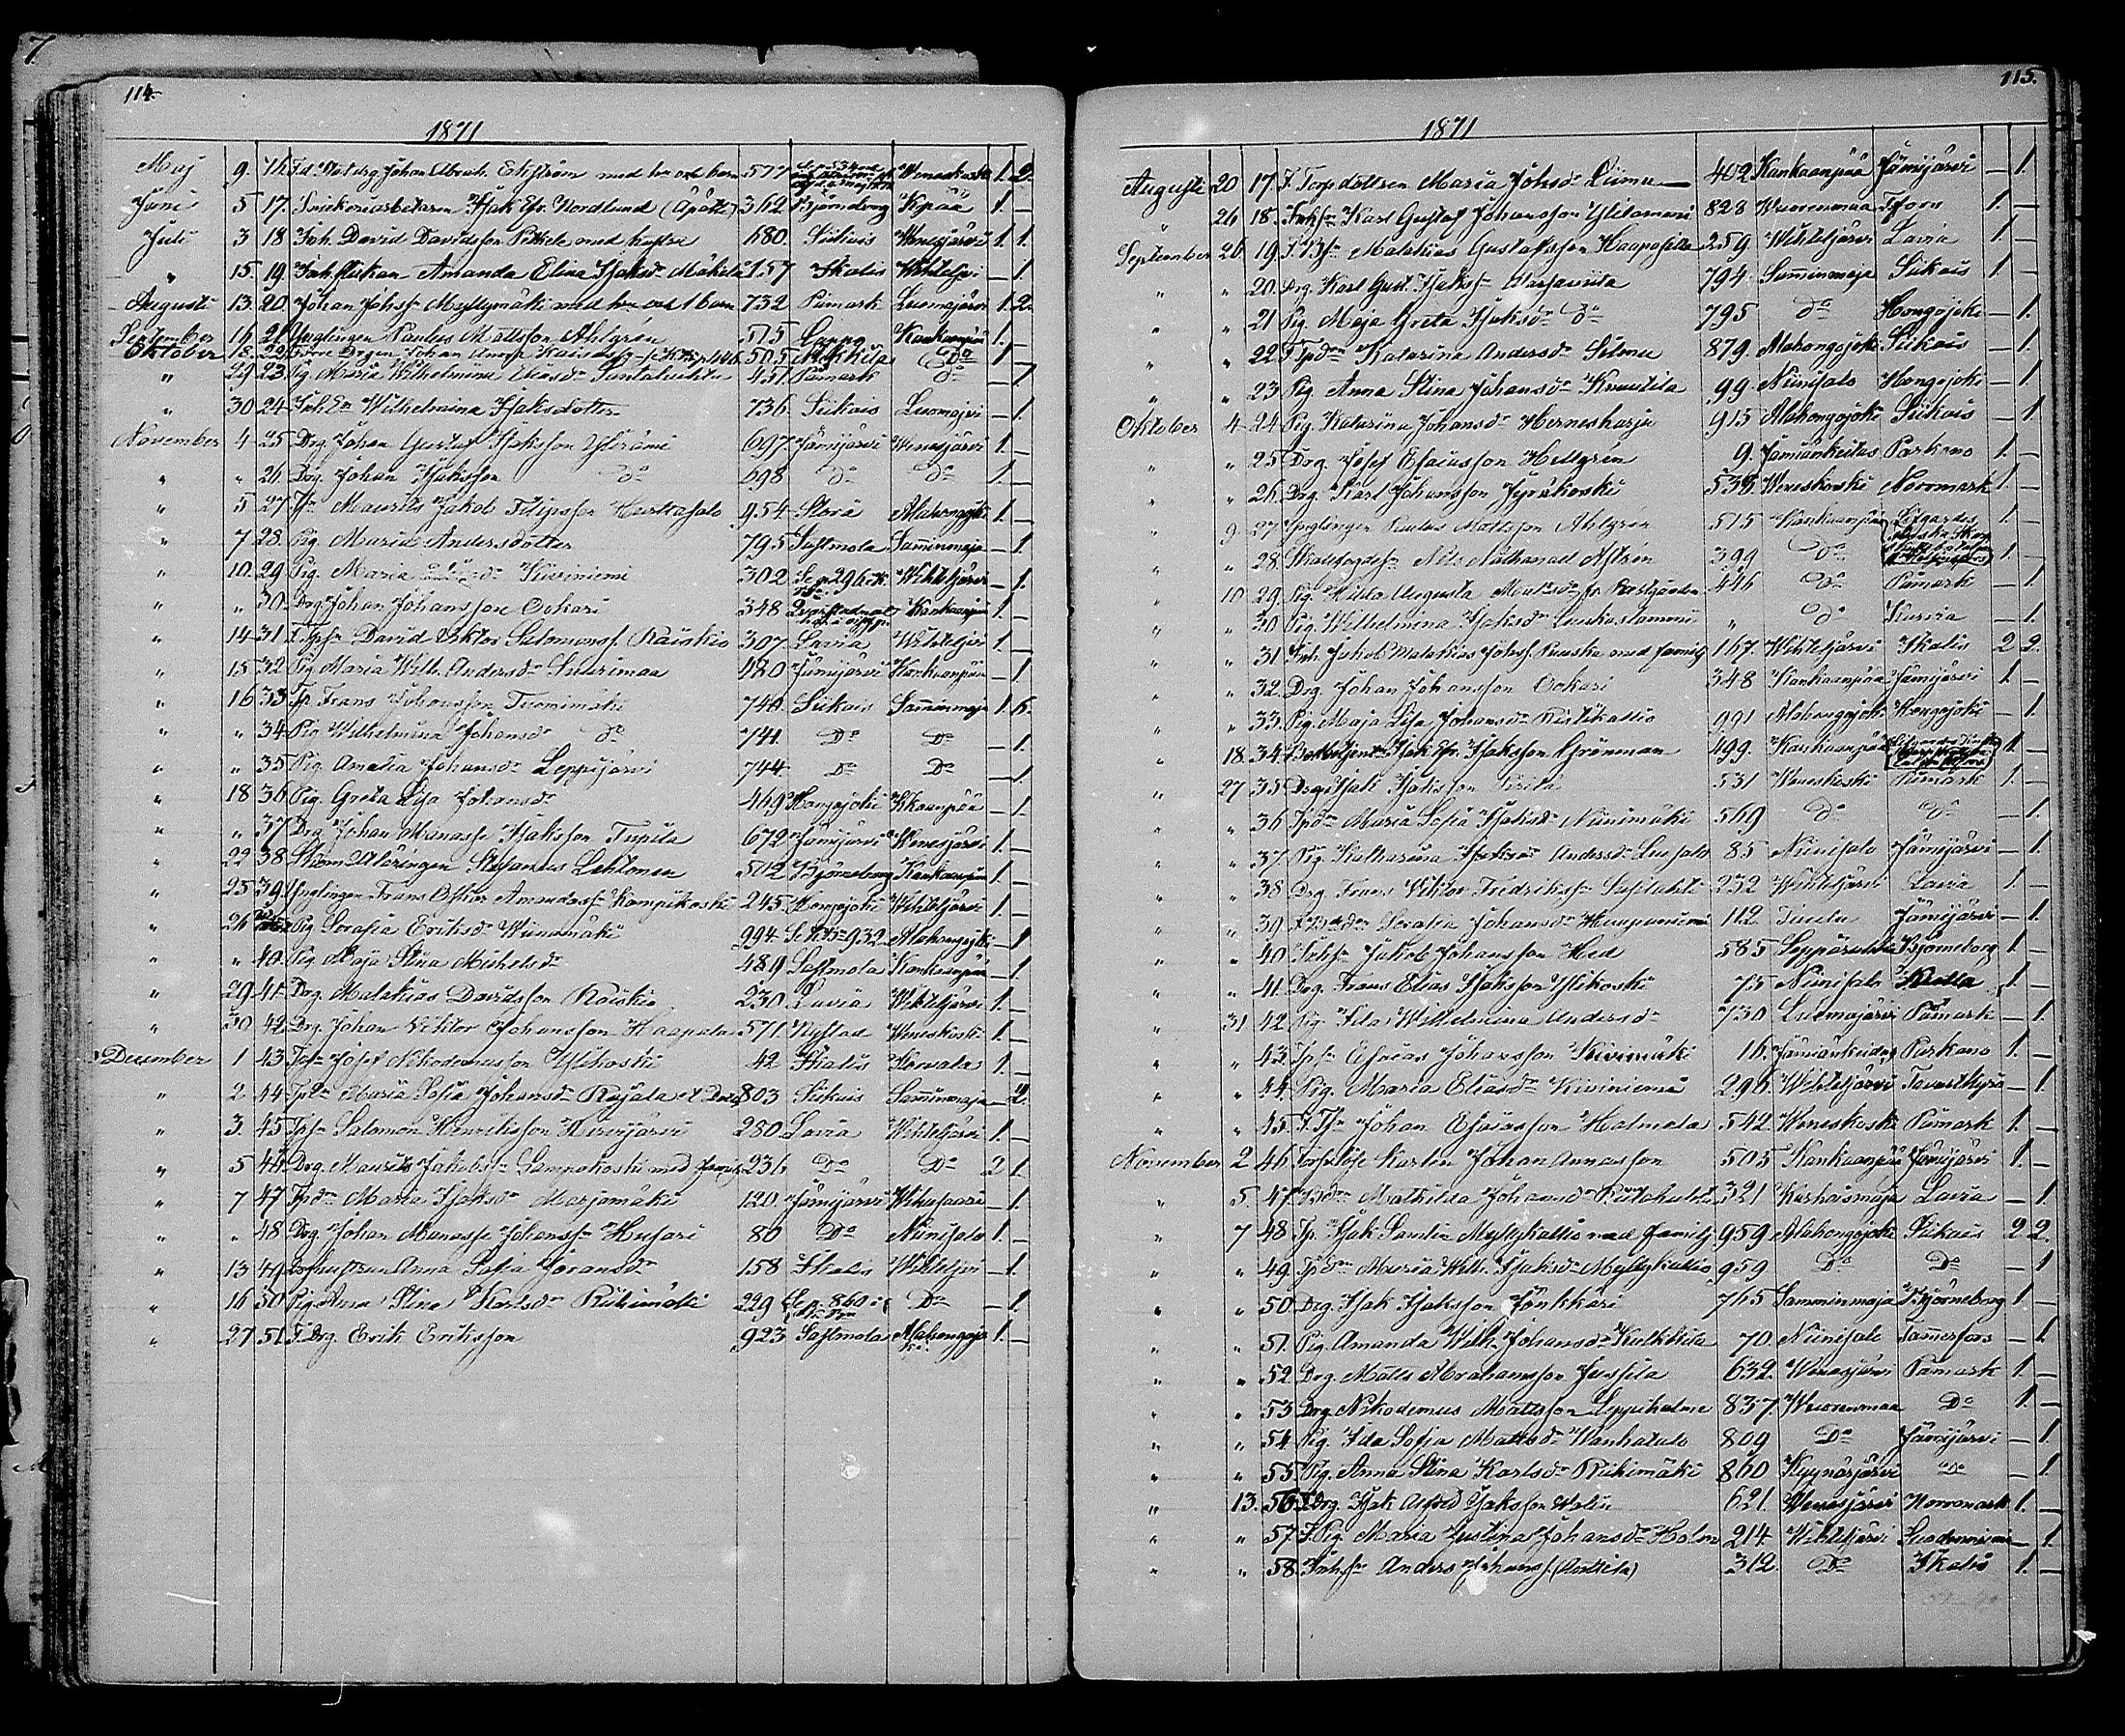 114.
1871
Maj 9. 16. Johan Abrah. Ekström med barn 577 Weneskoski 1. 2.
Juni 5 17. Snickeriarbetaren Isak Efr. Nordlund (Äpätti) 362 Björneborg Kpää 1. —
Juli 3 18 Inh. David Davidsson Petkele med hustru 680. Siikais Wenesjärvi 1. 1.
" 15. 19. Inh. flickan Amanda Elina Isaksdr Mäkelä 157 Ikalis Wihteljvi — 1.
Augusti 13. 20. Johan Johss. Myllymäki med hu och 1 barn 732 Påmark Luomajärvi 1. 2.
September 14. 21. Ynglingen Paulus Mattsson Ahlgrén 515 Lappo Kankaanpää 1. —
Oktober 18. 22. Drgen Johan 505 Do 1 —
" 29 23. Pig. Maria Wilhelmina Santalahti 451. Påmark Do — 1
" 30 24. Wilhelmina Isaksdotter 736. Siikais Luomajvi — 1.
November 4 25 Drg. Johan Gustaf Isaksson Ylirämi 697. Jämijärvi Wenesjärvi 1. —
" " 26. Drg. Johan Isaksson Do 698 Do Do 1. —
" 5 27 Maurits Jakob Filipsson Hertasalo 954 Storå Alahongojki 1. —
" 7 28. Pig. Maria Andersdotter 795 Sastmola Samminmaja — 1.
" 10. 29 Pig. Maria Kiviniemi 302 Se p. 296 Wihteljärvi — 1.
" " 30. Drg Johan Johansson Ockari 348 Kankaanpää 1. —
" 14 31. David Viktor Salomonss. Räiskiö 307. Lavia Wihteljvi 1. —
" 15 32. Pig. Maria Wilh. Andersdr Suurimaa 420 Jämijärvi Kankaanpää — 1
" 16 33 Tp. Frans Johansson Tuomimäki 740. Siikais Samminmaja 1. 6.
" " 34 Pig. Wilhelmina Johansdr Do 741. Do Do — 1.
" " 35 Pig. Amalia Johansdr Leppijärvi 744 Do Do — 1
" 18 36 Pig. Greta Lisa Johansdr 469 Hongojoki Kkaanpää — 1.
" " 37 Drg. Johan Manasse Isaksson Tupila 672 Jämijärvi Wenesjärvi 1. —
" 22 38. Stefanus Lehtonen 502 Björneborg Kankaanpää 1. —
" 25 39. Ynglingen Frans Oskar Kampikoski 245. Hongojoki Wihteljärvi 1. —
" 26 Pig Serafia Eriksdr Wiinamäki 994. 932 Alahongojki — 1
" " 40. Pig. Maja Stina Michelsdr 489 Sastmola Kankaanpää — 1.
" 29 41. Drg. Malakias Davidsson Räiskiö 230 Lavia Wihteljärvi 1. —
" 30 42. Drg. Johan Viktor Johansson Haapala 571. Nystad Weneskoski 1. —
December 1 43 Josef Nikodemusson Ylikoski 42 Ikalis Korvala 1. —
" 2 44 Maria Sofia Johansdr Rajala 803 Siikais Samminmaja — 2.
" 3. 45 Salomon Henriksson Hirvijärvi 280 Lavia Wihteljärvi 1. —
" 5 46 Drg. Maurits Jakobss. Lampikoski med familj 236 Do Do 2 1.
" 7 47 Maria Isaksdr Marjamäki 120. Jämijärvi Wihusaari — 1.
" " 48. Drg. Johan Manasse Johanss. Husari 80 Do Niinisalo 1. —
" 13 49 Anna Sofia Göransdr 158 Ikalis Wihteljvi — 1.
" 16 50 Pig. Anna Stina Karlsdr Riihimäki 229 Se p. 860 Do — 1.
" 27 51. F. Drg. Erik Eriksson 923 Sastmola Alahongojo ki 1. —
115.
1871
Augusti 20 17. F. Torp. dottren Maria Johsdr Liima 402 Kankaanpää Jämijärvi — 1.
" 26 18. Karl Gustaf Johansson Ylitamini 828 Wuorenmaa Tjöru 1. —
September 26 19 Malakias Gustafsson Haapasilla 259 Wihteljärvi Lavia 1. —
" " 20. Drg. Karl Gust. Isakss. 794. Samminmaja Siikais 1. —
" " 21 Pig. Maja Greta Isaksdr Do 795 Do Hongojoki — 1.
" " 22. Katarina Andersdr Silmu 879. Alahongojoki Siikais — 1.
" " 23 Pig. Anna Stina Johansdr Knuutila 99 Niinisalo Hongojoki — 1.
Oktober 4 24 Pig. Katarina Johansdr Hernesharju 915 Alahongojoki Siikais — 1.
" " 25 Drg. Josef Esaiasson Hellgren 9. Jämiänkeidas Parkano 1. —
" " 26 Drg. Karl Johansson Jyräkoski 538 Weneskoski Norrmark 1. —
" 9 27 Ynglingen Paulus Mattsson Ahlgrén 515 Kankaanpää 1. —
" " 28. Nils Nathanael 399 Do 1 —
" 10. 29. Pig. Hilda Augusta fr. Prestgården 446 Do Påmark — 1
" " 30 Pig. Wilhelmina Isaksdr Luukaslammi " Do Kurvia — 1.
" " 31 Inh. Jakob Malakias Johss. Ruuska med familj 167. Wihteljärvi Ikalis 2 2.
" " 32. Drg. Johan Johansson Ockari 348 Kankaanpää Jämijärvi 1. —
" " 33. Pig. Maja Lisa Johansdr Ristikallio 991 Alahongojoki Hongojoki — 1.
" 18. 34. Isak Efr. Isaksson Grönman 499. Kankaanpää 1. —
" 27 35 Drg. Isak Isaksson Perila 531 Weneskoski Påmark 1. —
" " 36 Maria Sofia Isaksdr Niinimäki 569 Do Do — 1.
" " 37. Pig. Katharina Andersdr Luosalo 85 Niinisalo Jämijärvi — 1.
" " 38. Drg. Frans Viktor Fredrikss. Sasilahti 232 Wihteljärvi Lavia 1. —
" " 39. Serafia Johansdr Haapaniemi 112 Jämijärvi — 1.
" " 40 Jakob Johansson Hed 585 Björneborg 1. —
" " 41. Drg. Frans Elias Isaksson Ylikoski 75 Niinisalo 1. —
" 31 42. Pig. Wilhelmina Andersdr 730 Luomajärvi Påmark — 1.
" " 43. Esaias Johansson Kivimäki 16. Jämiänkeidas Parkano 1. —
" " 44. Pig. Maria Eliasdr Kiviniemi 296. Wihteljärvi Tavastkyrö — 1.
" " 45. Johan Esaiasson Halmela 542 Weneskoski Påmark 1. —
November 2 46. Torflöse Karlen Johan Annasson 505 Kankaanpää Jämijärvi 1. —
" 5. 47. Mathilda Johansdr Riitahuhta 321 Karhoismaja Lavia — 1.
" 7 48 Tp. Isak Samlin Myllykallio med familj 959 Alahongojoki Siikais 2 2.
" " 49. Maria Wilh. Isaksdr Myllykallio 959 Do Do — 1
" " 50. Drg. Isak Isaksson Jönkkäri 765 Samminmaja Björneborg 1 —
" " 51. Pig. Amanda Wilh. Johansdr Kulkkila 70. Niinisalo Tammerfors — 1.
" " 52. Drg. Matts Abrahamsson Jussila 632. Wenesjärvi Påmark 1. —
" " 53 Drg. Nikodemus Mattsson Leppihalme 837. Wuorenmaa Do 1. —
" " 54. Pig. Ida Sofia Mattsdr Wanhatalo 809 Do Jämijärvi — 1.
" " 55. Pig. Anna Stina Karlsdr Riihimäki 860 Kyynärjärvi Do — 1.
" 13. 56. Drg. Isak Alfred Isaksson Walli 621. Wenesjärvi Norrmark 1. —
" " 57. F. Pig. Maria Justina Johansdr Holm 214. Wihteljärvi Suodenniemi — 1.
" " 58. Anders Johanss. (Anttila) 312. Do Ikalis 1. —